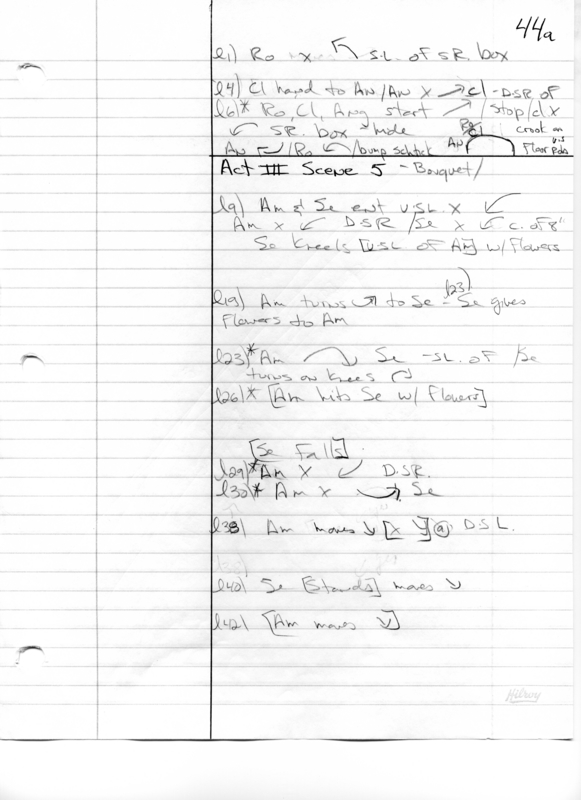 44a
l1) Ro X S.L. of SR. box
l4) Cl hand to AN/AN X → Cl - D.SR of
l6)* Ro, Cl, Ang start → /Stop/Cl X
↙ SR. box hide Ro Cl crook on
AN /Ro /bump schtick AN U.S Floor
Act III Scene 5 - Bouquet/
l9) Am & Se ent U.SL. X ↙
Am X ↙ D.SR /Se X ↙ C. of 8"
Se kneels [U.SL of AM] w/ Flowers
l19) Am turns to Se - l23) Se gives
Flowers to Am
l23)* Am Se -SL. of /Se
turns on knees
l26)* [Am hits Se w/ Flowers]
[Se Falls]
l29)* Am X ↙ D.SR.
l30)* Am X Se
l38) Am moves ↓ [X ↓] @ D.S.L.
l40) Se [Stands] moves ↓
l42) [Am moves ↓]
Hilroy